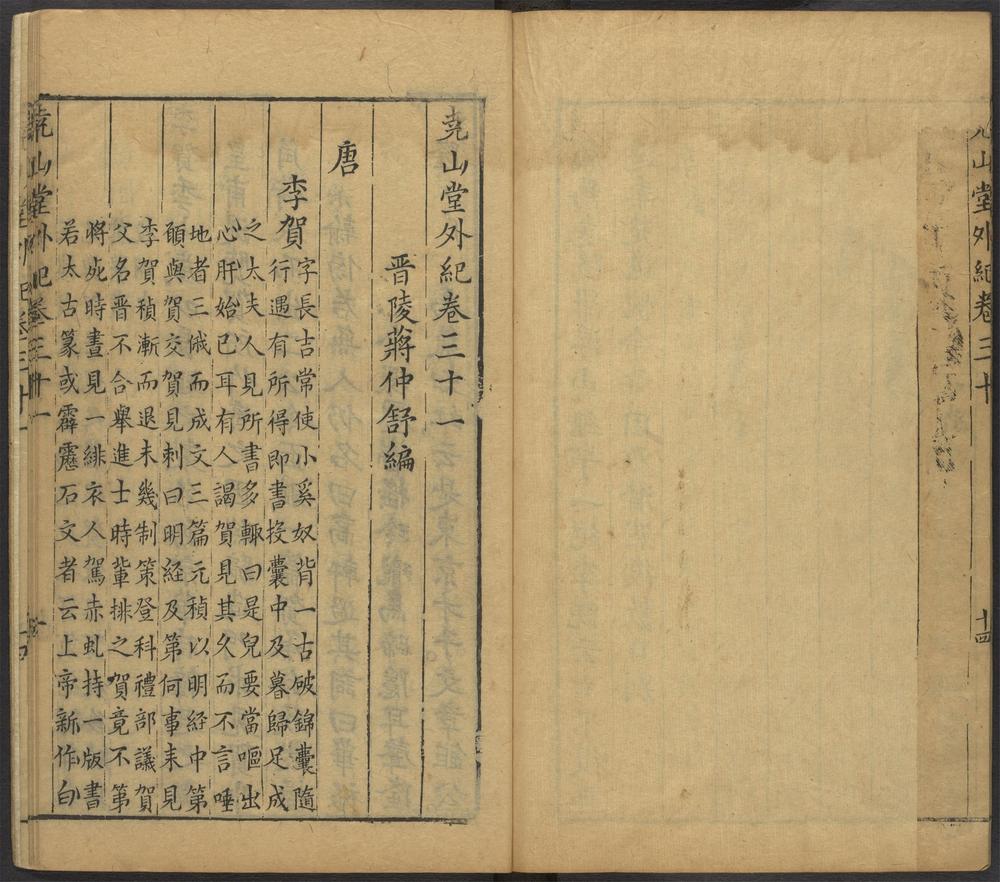 堯山堂外紀卷三十
十四
堯山堂外紀卷三十一
晉陵蔣仲舒編
唐
李賀字長吉常使小奚奴背一古破錦囊隨
行遇有所得即書投囊中及暮歸足成
之太夫人見所書多輒曰是兒要當嘔出
心肝始已耳有人謁賀見其久而不言唾
地者三俄而成文三篇元稹以明經中第
願與賀交賀見刺曰明經及第何事来見
李賀稹漸而退未幾制策登科禮部議賀
父名晉不合舉進士時軰排之賀竟不第
將死時晝見一緋衣人駕赤虬持一版書
若太古篆或霹靂石文者云上帝新作白
堯山堂外紀卷三十一